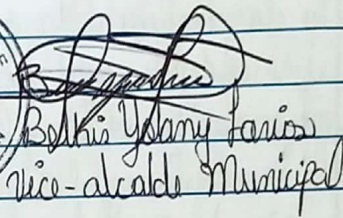 Belkis Yolany Larios
Vice-alcalde Municipal